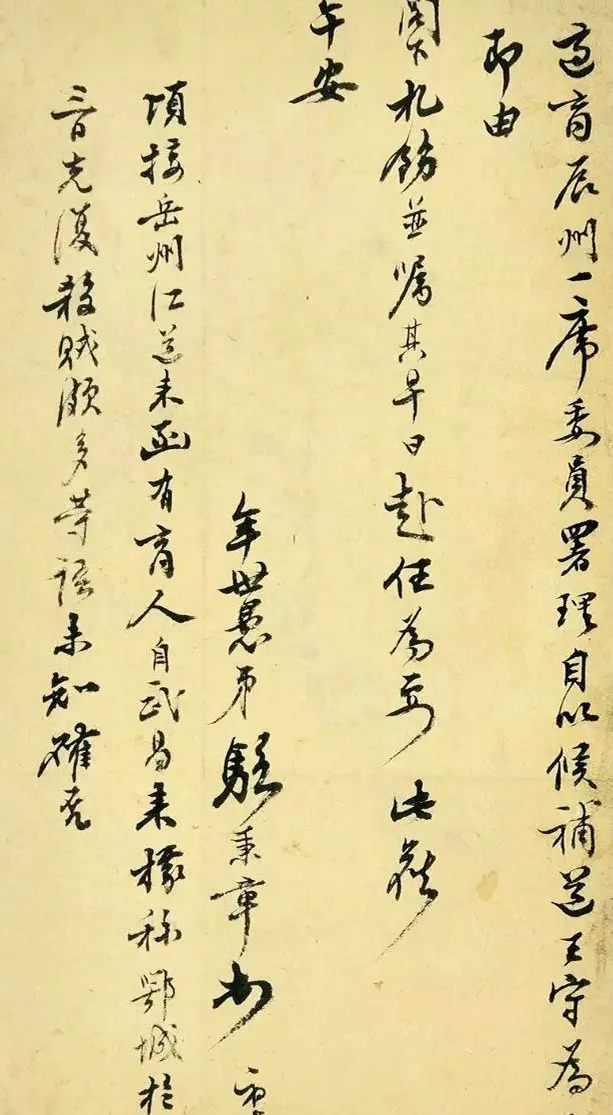 商辰州一席委員署理自以候補道王守為
即由
閣下札飭並囑其早日赴任為要 此
午安
年世愚弟駱秉章
頃接岳州江道来函有商人自武昌来據称鄂城於
三日克復殺賊頗多等語未知確否